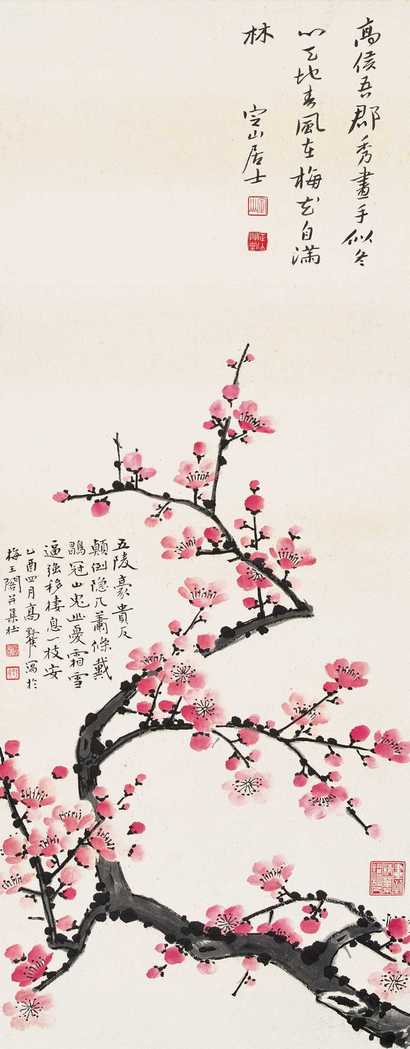 高侯吾郡秀畫手似冬
心天地春風在梅花自滿
林
定山居士
五陵豪貴反
顛倒隱几蕭條戴
鶡冠山鬼幽憂霜雪
逼強移棲息一枝安
乙酉四月高野侯寫於
梅王閣并集杜